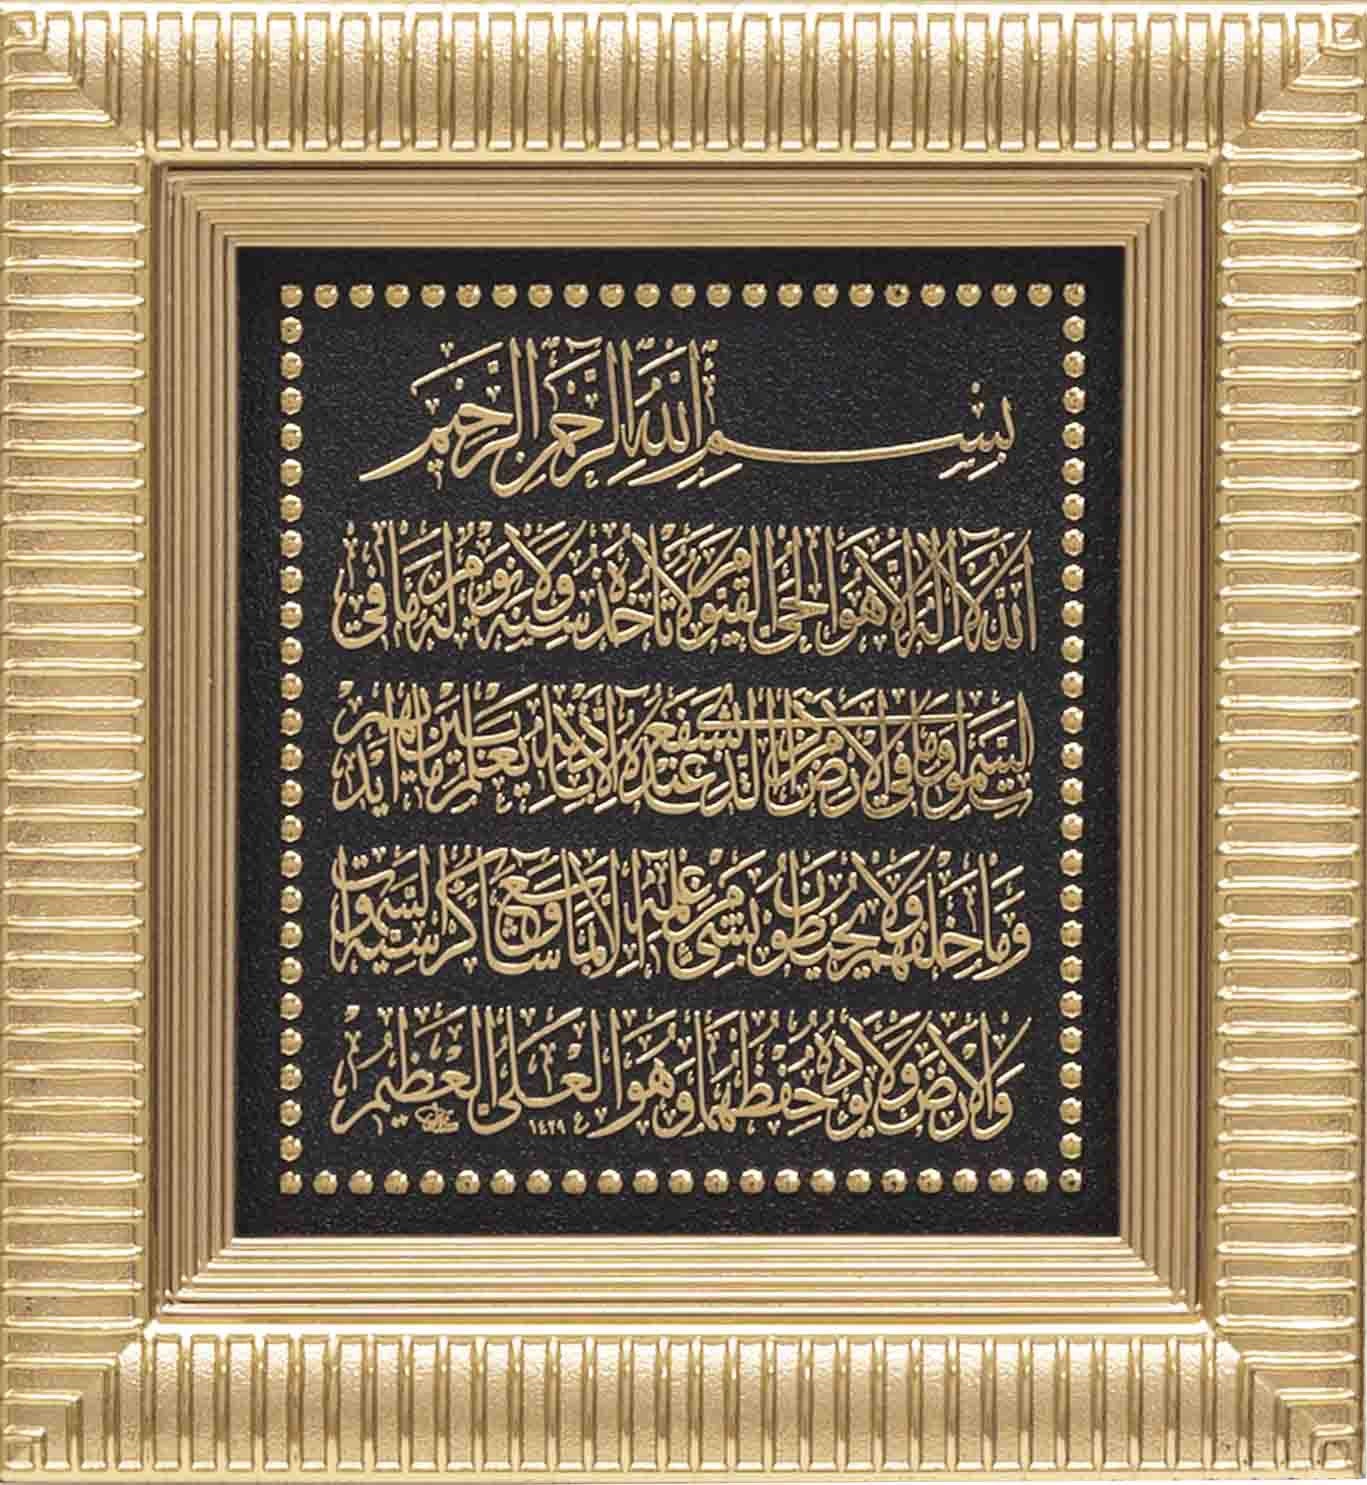 بِسْمِ اللَّهِ الرَّحْمٰنِ الرَّحِيمِ
اللَّهُ لَا إِلٰهَ إِلَّا هُوَ الْحَيُّ الْقَيُّومُ لَا تَأْخُذُهُ سِنَةٌ وَلَا نَوْمٌ لَهُ مَا فِي
السَّمٰوَاتِ وَمَا فِي الْأَرْضِ مَنْ ذَا الَّذِي يَشْفَعُ عِنْدَهُ إِلَّا بِإِذْنِهِ يَعْلَمُ مَا بَيْنَ أَيْدِيهِمْ
وَمَا خَلْفَهُمْ وَلَا يُحِيطُونَ بِشَيْءٍ مِنْ عِلْمِهِ إِلَّا بِمَا شَاءَ وَسِعَ كُرْسِيُّهُ السَّمٰوَاتِ
وَالْأَرْضَ وَلَا يَئُودُهُ حِفْظُهُمَا وَهُوَ الْعَلِيُّ الْعَظِيمُ
١٤٢٩